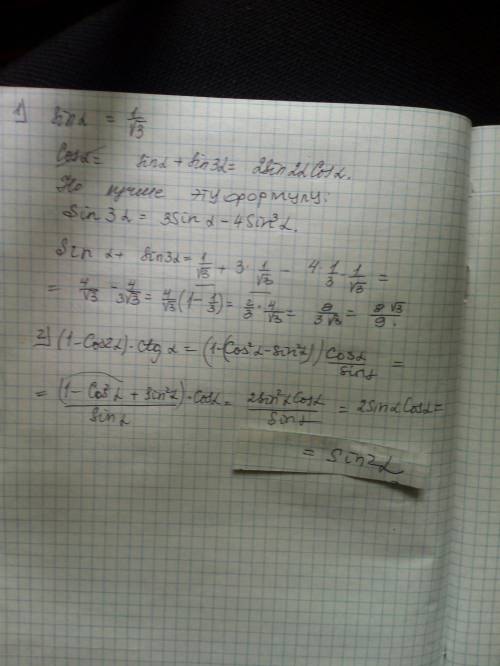 1) sinα = 1/√3
Cosα = sinα + sin3α = 2sin2α Cosα.
Но лучше эту формулу:
Sin 3α = 3Sin α - 4Sin³α.
Sin α + sin3α = 1/√3 + 3·1/√3 - 4·1/3·1/√3 =
= 4/√3 - 4/3√3 = 4/√3 (1 - 1/3) = 2/3 · 4/√3 = 8/3√3 = 8√3/9.
2) (1-Cos2α)·ctg α = (1-(Cos²α-Sin²α)) Cosα/Sinα =
= (1 - Cos²α + Sin²α)·Cosα/Sinα = 2Sin²α Cosα/Sinα = 2Sinα Cosα =
= Sin2α